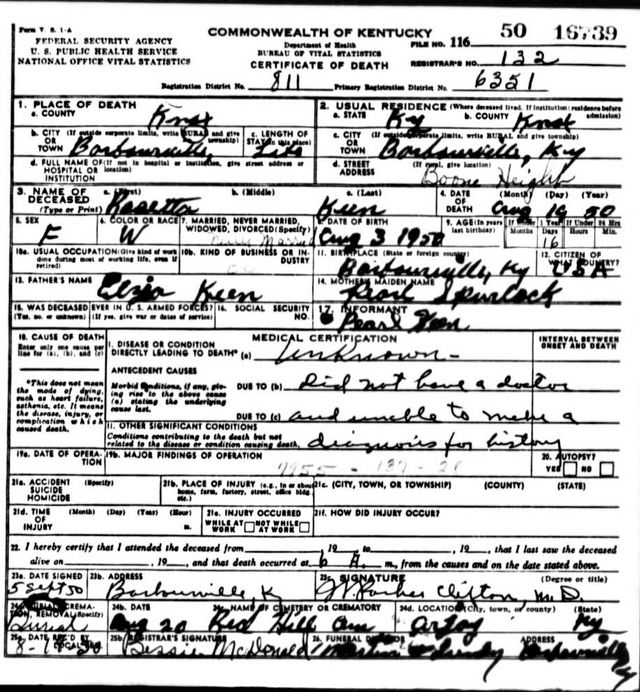 Form V. S. 1-A
FEDERAL SECURITY AGENCY
U. S. PUBLIC HEALTH SERVICE
NATIONAL OFFICE VITAL STATISTICS
COMMONWEALTH OF KENTUCKY
Department of Health
BUREAU OF VITAL STATISTICS
CERTIFICATE OF DEATH
FILE NO. 116 50 16739
REGISTRAR'S NO. 132
Registration District No. 811 Primary Registration District No. 6351
1. PLACE OF DEATH
a. COUNTY Knox
2. USUAL RESIDENCE (Where deceased lived. If institution: residence before admission)
a. STATE Ky b. COUNTY Knox
b. CITY (If outside corporate limits, write RURAL and give township)
OR TOWN Barbourville,
c. LENGTH OF STAY (in this place) Life
c. CITY (If outside corporate limits, write RURAL and give township)
OR TOWN Barbourville, Ky
d. FULL NAME OF (If not in hospital or institution, give street address or location)
HOSPITAL OR INSTITUTION
d. STREET ADDRESS (If rural, give location)
Boone Height
3. NAME OF DECEASED (Type or Print)
a. (First) Rosetta b. (Middle) c. (Last) Keen
4. DATE OF DEATH (Month) (Day) (Year)
Aug 19 50
5. SEX F
6. COLOR OR RACE W
7. MARRIED, NEVER MARRIED, WIDOWED, DIVORCED (Specify)
Never Married
8. DATE OF BIRTH Aug 3 1950
9. AGE (In years last birthday) If Under 1 Year Months Days 16 If Under 24 Hrs Hours Min.
10a. USUAL OCCUPATION (Give kind of work done during most of working life, even if retired)
10b. KIND OF BUSINESS OR INDUSTRY
11. BIRTHPLACE (State or foreign country)
Barbourville, Ky
12. CITIZEN OF WHAT COUNTRY?
USA
13. FATHER'S NAME
Keen
14. MOTHER'S MAIDEN NAME
Pearl Spurlock
15. WAS DECEASED EVER IN U. S. ARMED FORCES?
(Yes, no, or unknown) (If yes, give war or dates of service)
16. SOCIAL SECURITY NO.
17. INFORMANT
Pearl Keen
18. CAUSE OF DEATH
Enter only one cause per line for (a), (b), and (c)
MEDICAL CERTIFICATION
INTERVAL BETWEEN ONSET AND DEATH
I. DISEASE OR CONDITION DIRECTLY LEADING TO DEATH* (a) Unknown-
*This does not mean the mode of dying, such as heart failure, asthenia, etc. It means the disease, injury, or complication which caused death.
ANTECEDENT CAUSES
Morbid conditions, if any, giving rise to the above cause (a) stating the underlying cause last.
DUE TO (b) Did not have a doctor
DUE TO (c) and unable to make a
diagnosis for history
II. OTHER SIGNIFICANT CONDITIONS
Conditions contributing to the death but not related to the disease or condition causing death.
19a. DATE OF OPERATION
19b. MAJOR FINDINGS OF OPERATION
20. AUTOPSY?
YES NO
21a. ACCIDENT SUICIDE HOMICIDE (Specify)
21b. PLACE OF INJURY (e.g., in or about home, farm, factory, street, office bldg. etc.)
21c. (CITY, TOWN, OR TOWNSHIP) (COUNTY) (STATE)
21d. TIME OF INJURY (Month) (Day) (Year) (Hour) m.
21e. INJURY OCCURRED
WHILE AT WORK NOT WHILE AT WORK
21f. HOW DID INJURY OCCUR?
22. I hereby certify that I attended the deceased from , 19 to , 19 , that I last saw the deceased
alive on , 19 , and that death occurred at 6 A. m., from the causes and on the date stated above.
23a. DATE SIGNED
5 Sept 50
23b. ADDRESS
Barbourville, K
23c. SIGNATURE (Degree or title)
Parker Clifton, M.D.
24a. BURIAL, CREMATION, REMOVAL (Specify)
Burial
24b. DATE
Aug 20
24c. NAME OF CEMETERY OR CREMATORY
Red Hill Cem
24d. LOCATION (City, town, or county) (State)
Artoy Ky
25a. DATE REC'D BY LOCAL REG.
25b. REGISTRAR'S SIGNATURE
Bessie McDonald
26. FUNERAL DIRECTOR ADDRESS
Barbourville Ky